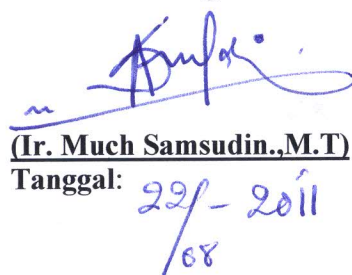 (Ir. Much Samsudin.,M.T)
Tanggal: 22/08 - 2011